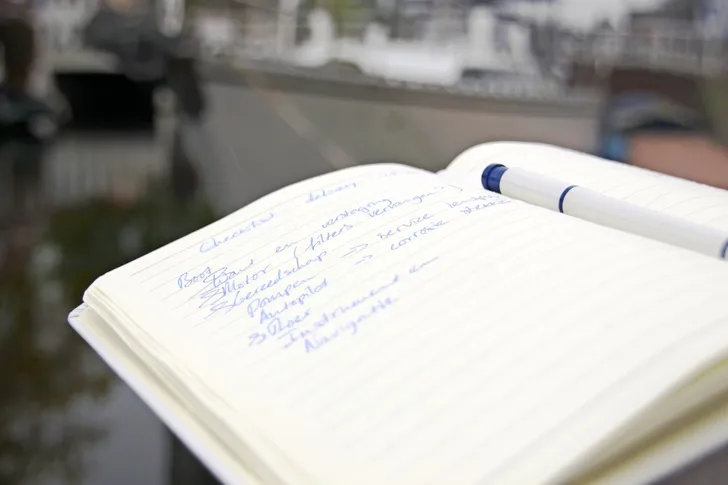 Checklist delivery
Boot
Romp en verstaging
Motor / filters vervangen
Gereedschap → service
Pompen → corrosie
Autopilot
Roer
Instrument en
Navigatie